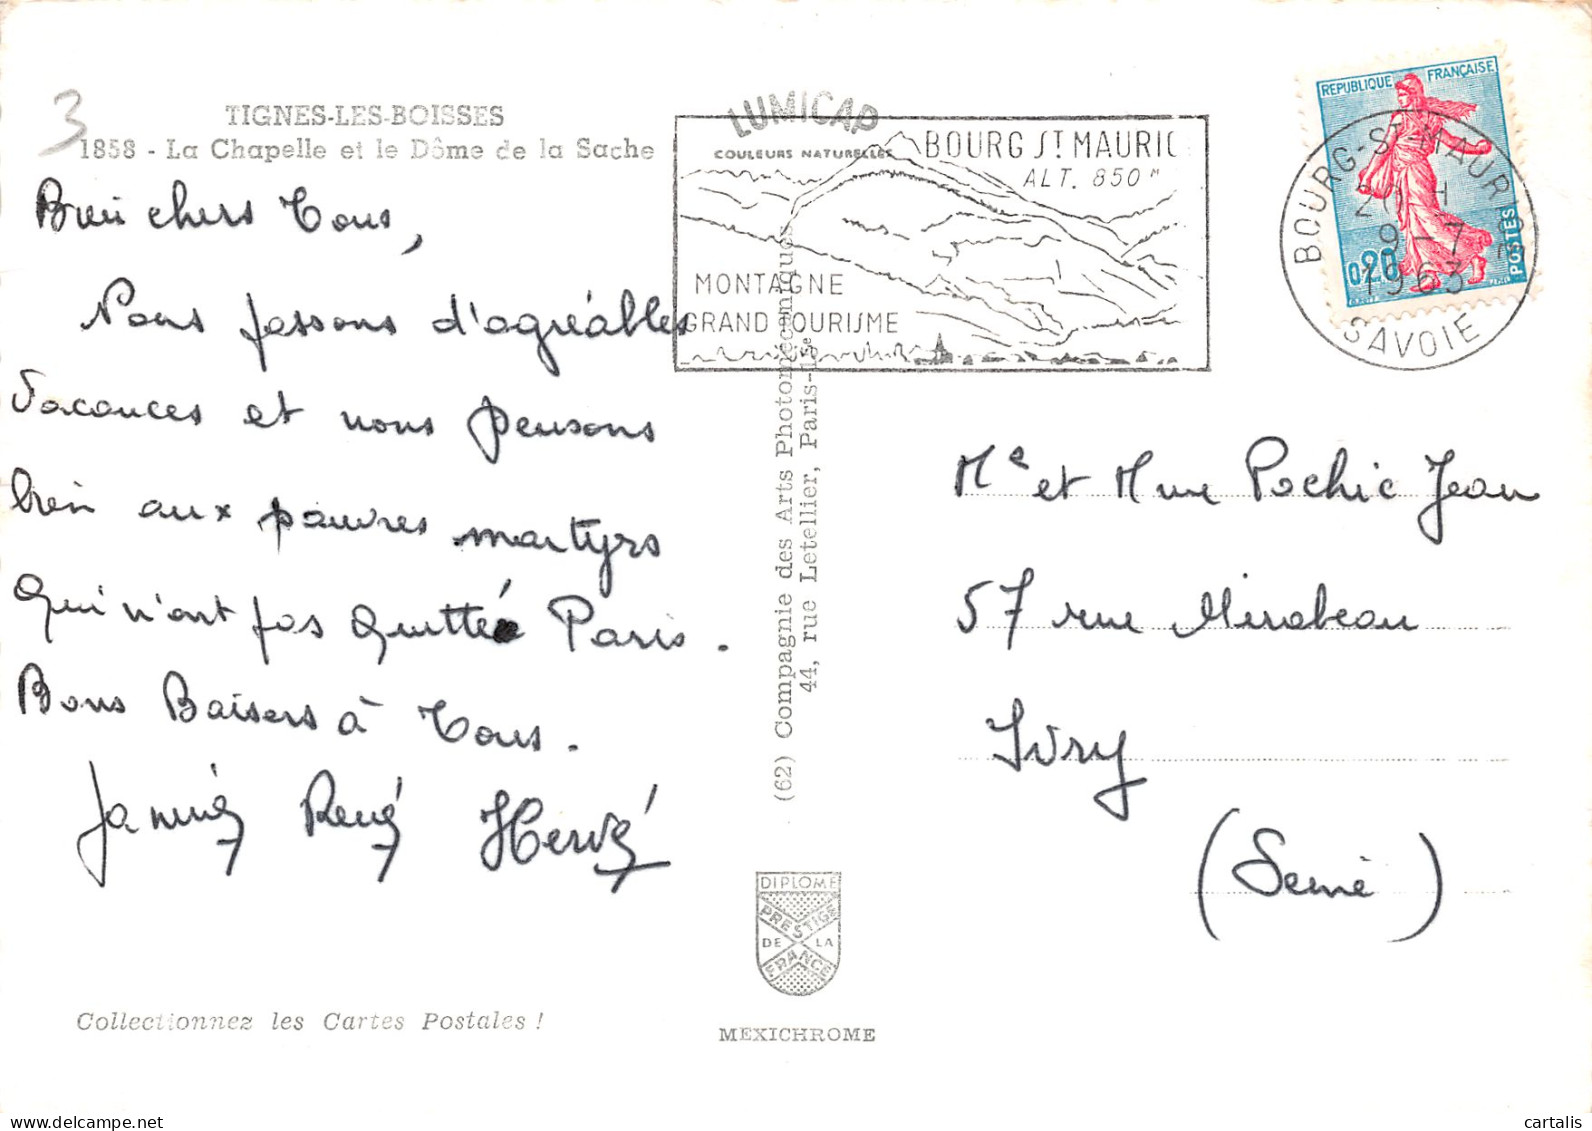 3
TIGNES-LES-BOISSES
1858 - La Chapelle et le Dôme de la Sache
Bien chers Tous,
Nous passons d'agréables
vacances et nous pensons
bien aux pauvres martyrs
qui n'ont pas quitté Paris.
Bons Baisers à Tous.
Janine René Hervé
Collectionnez les Cartes Postales !
LUMICAP
COULEURS NATURELLES
BOURG ST MAURIC
ALT. 850 M
MONTAGNE
GRAND TOURISME
(62) Compagnie des Arts Photomécaniques
44, rue Letellier, Paris-15e
DIPLOME
PRESTIGE
DE LA
FRANCE
MEXICHROME
REPUBLIQUE FRANÇAISE
0,20
POSTES
BOURG-ST-MAURICE
9-7
1963
SAVOIE
Me et Mme Pochic Jean
57 rue Mirabeau
Ivry
(Seine)
cartalis